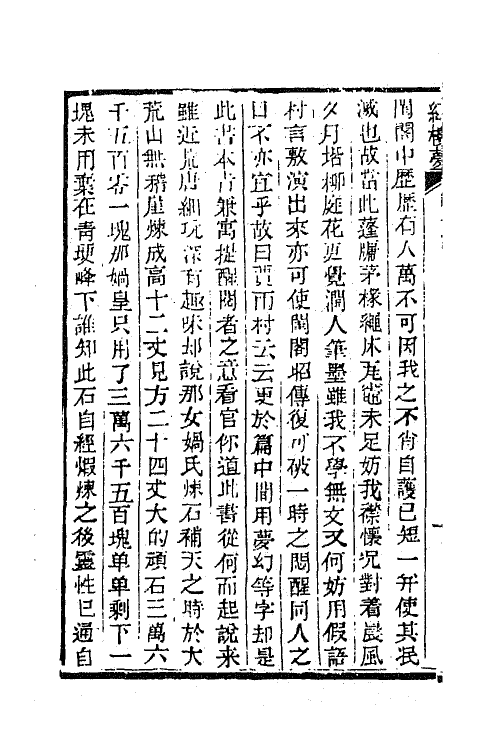 紅樓夢
閨閣中歷歷有人萬不可因我之不肖自護己短一并使其泯
滅也故當此蓬牖茅椽繩床瓦竈未足妨我襟懷况對着晨風
夕月堦柳庭花更覺潤人筆墨雖我不學無文又何妨用假語
村言敷演出來亦可使閨閣昭傳復可破一時之悶醒同人之
目不亦宜乎故曰賈雨村云云更於篇中間用夢幻等字却是
此書本旨兼寓提醒閱者之意看官你道此書從何而起說來
雖近荒唐細玩深有趣味却說那女媧氏煉石補天之時於大
荒山無稽崖煉成高十二丈見方二十四丈大的頑石三萬六
千五百零一塊那媧皇只用了三萬六千五百塊单单剩下一
塊未用棄在青埂峰下誰知此石自經煆煉之後靈性已通自